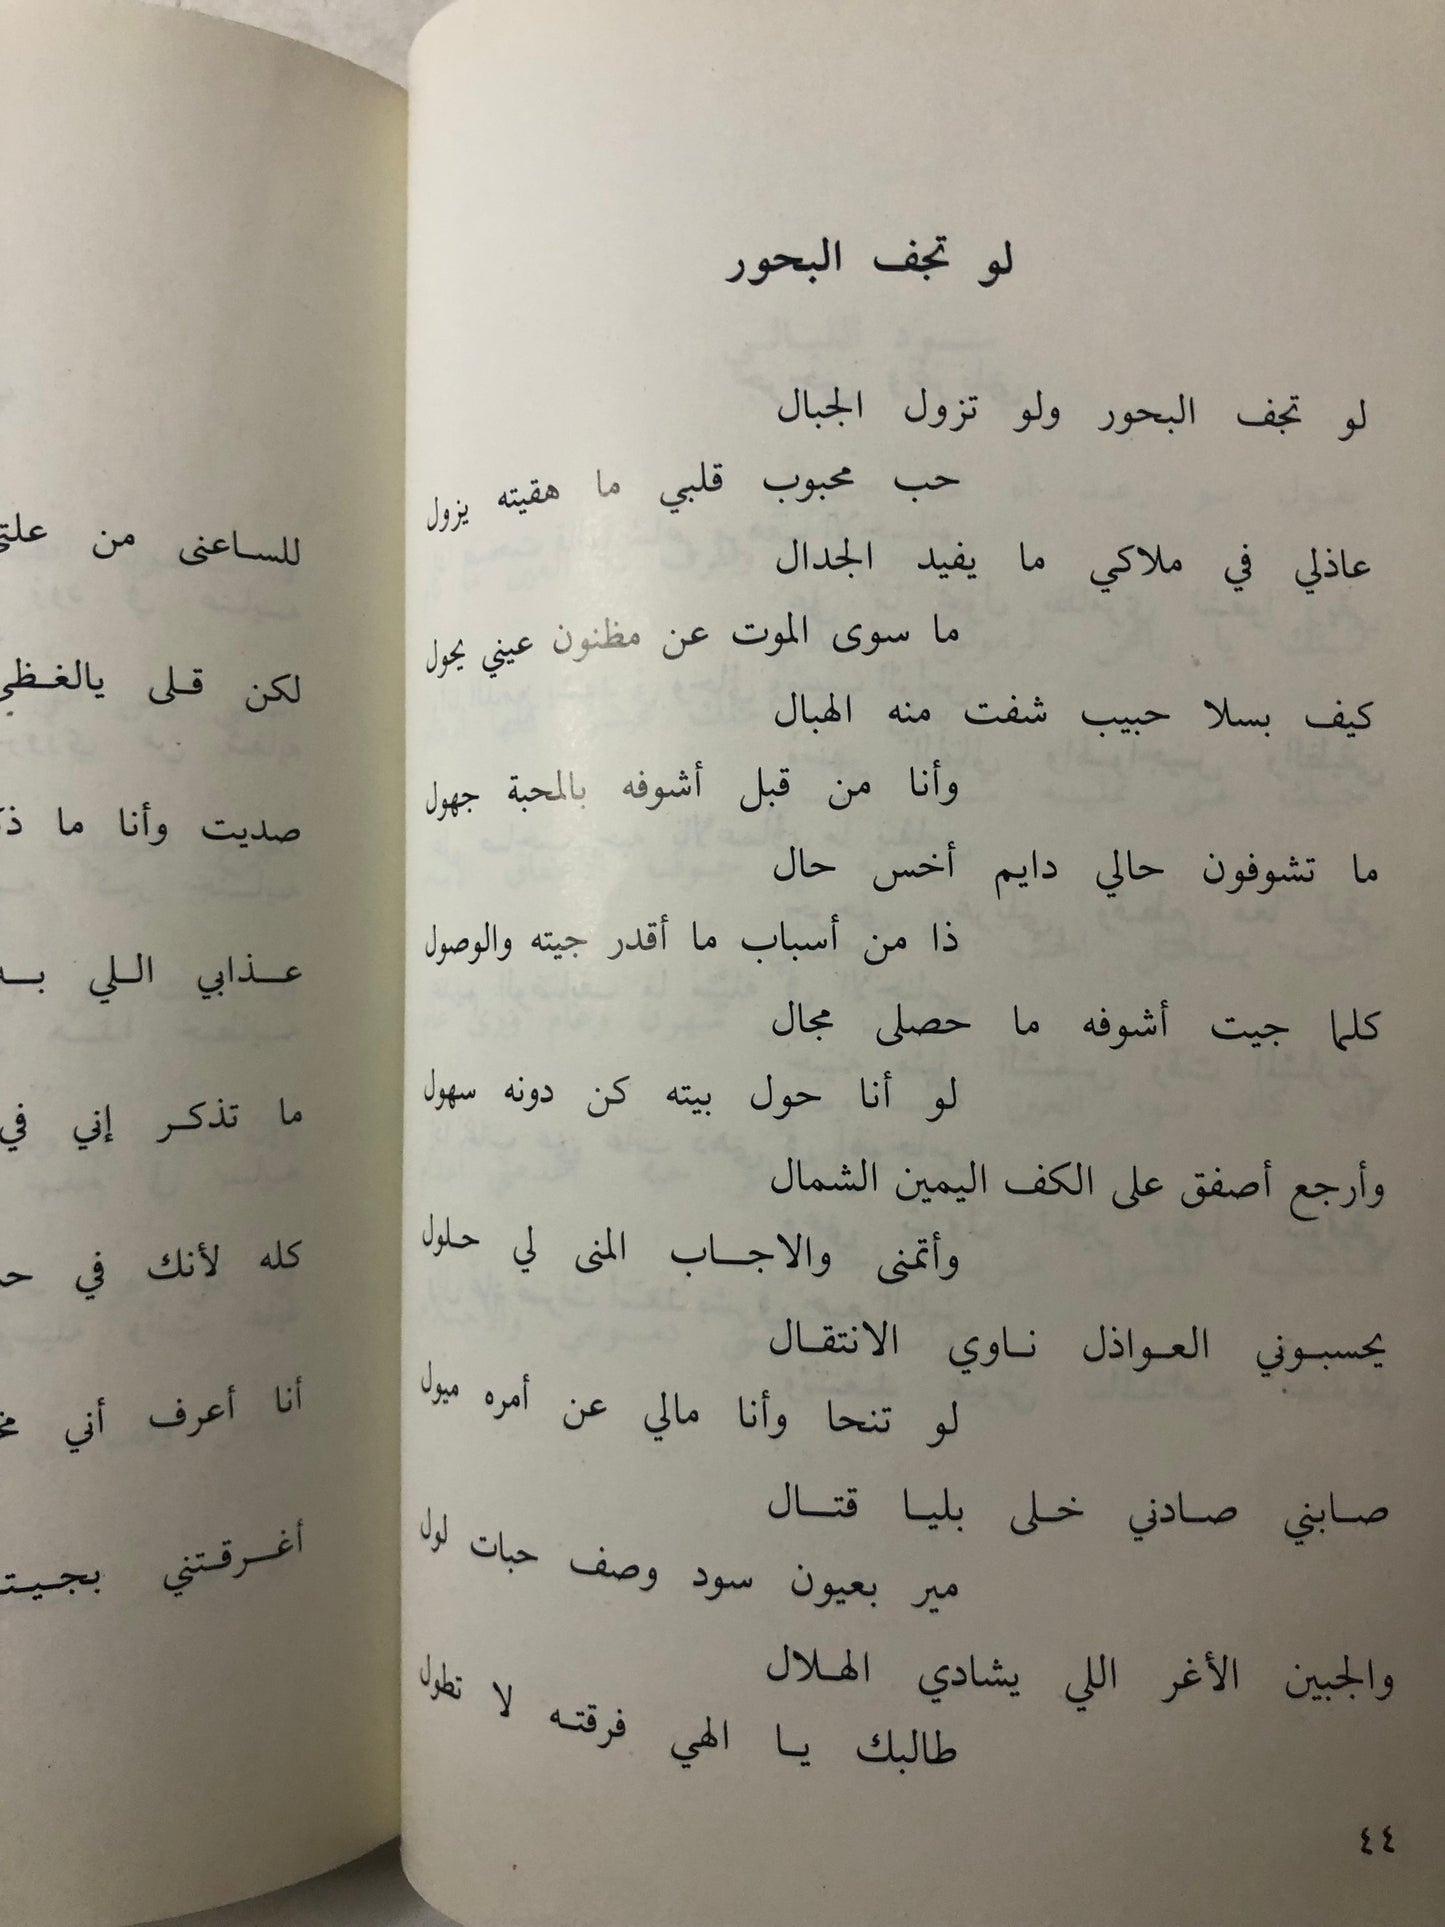 لو تجف البحور
لو تجف البحور ولو تزول الجبال
حب محبوب قلبي ما هقيته يزول
عاذلي في ملاكي ما يفيد الجدال
ما سوى الموت عن مظنون عيني يحول
كيف بسلا حبيب شفت منه الهبال
وأنا من قبل أشوفه بالمحبة جهول
ما تشوفون حالي دايم أخس حال
ذا من أسباب ما أقدر جيته والوصول
كلما جيت أشوفه ما حصلى مجال
لو أنا حول بيته كن دونه سهول
وأرجع أصفق على الكف اليمين الشمال
وأتمنى والاجــاب المنى لي حلول
يحسبوني العـواذل نـاوي الانتقـال
لو تنحا وأنا مالي عن أمره ميول
صـابني صـادني خـلى بليـا قتــال
مير بعيون سود وصف حبات لول
والجبين الأغر اللي يشادي الهـلال
طالبك يـا الهي فرقتـه لا تطول
٤٤
للساعنى من
لكن قـلى
صديت وأنا ما
عـذابي الـلي
ما تذكـر إني في
كله لأنك في
أنا أعرف أني
أغـرقـتني